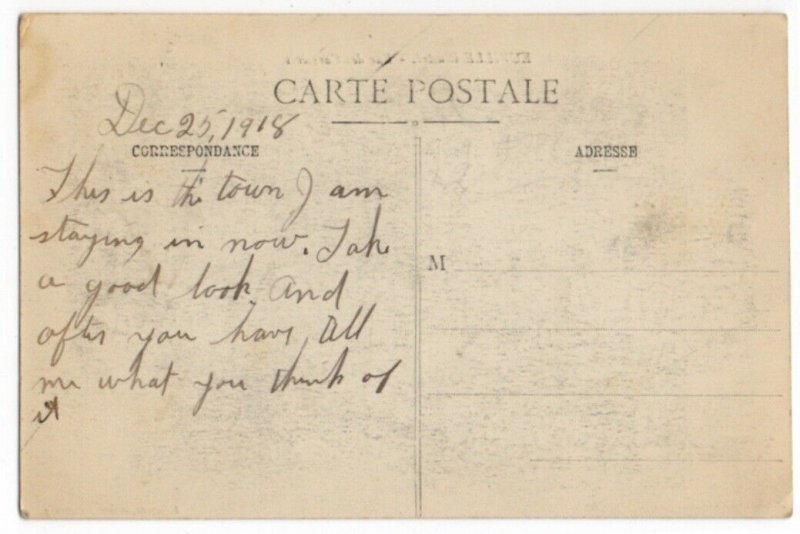 CARTE POSTALE
Dec 25, 1918
CORRESPONDANCE
ADRESSE
This is the town I am
staying in now. Take
a good look and
after you have, all
me what you think of
it
M